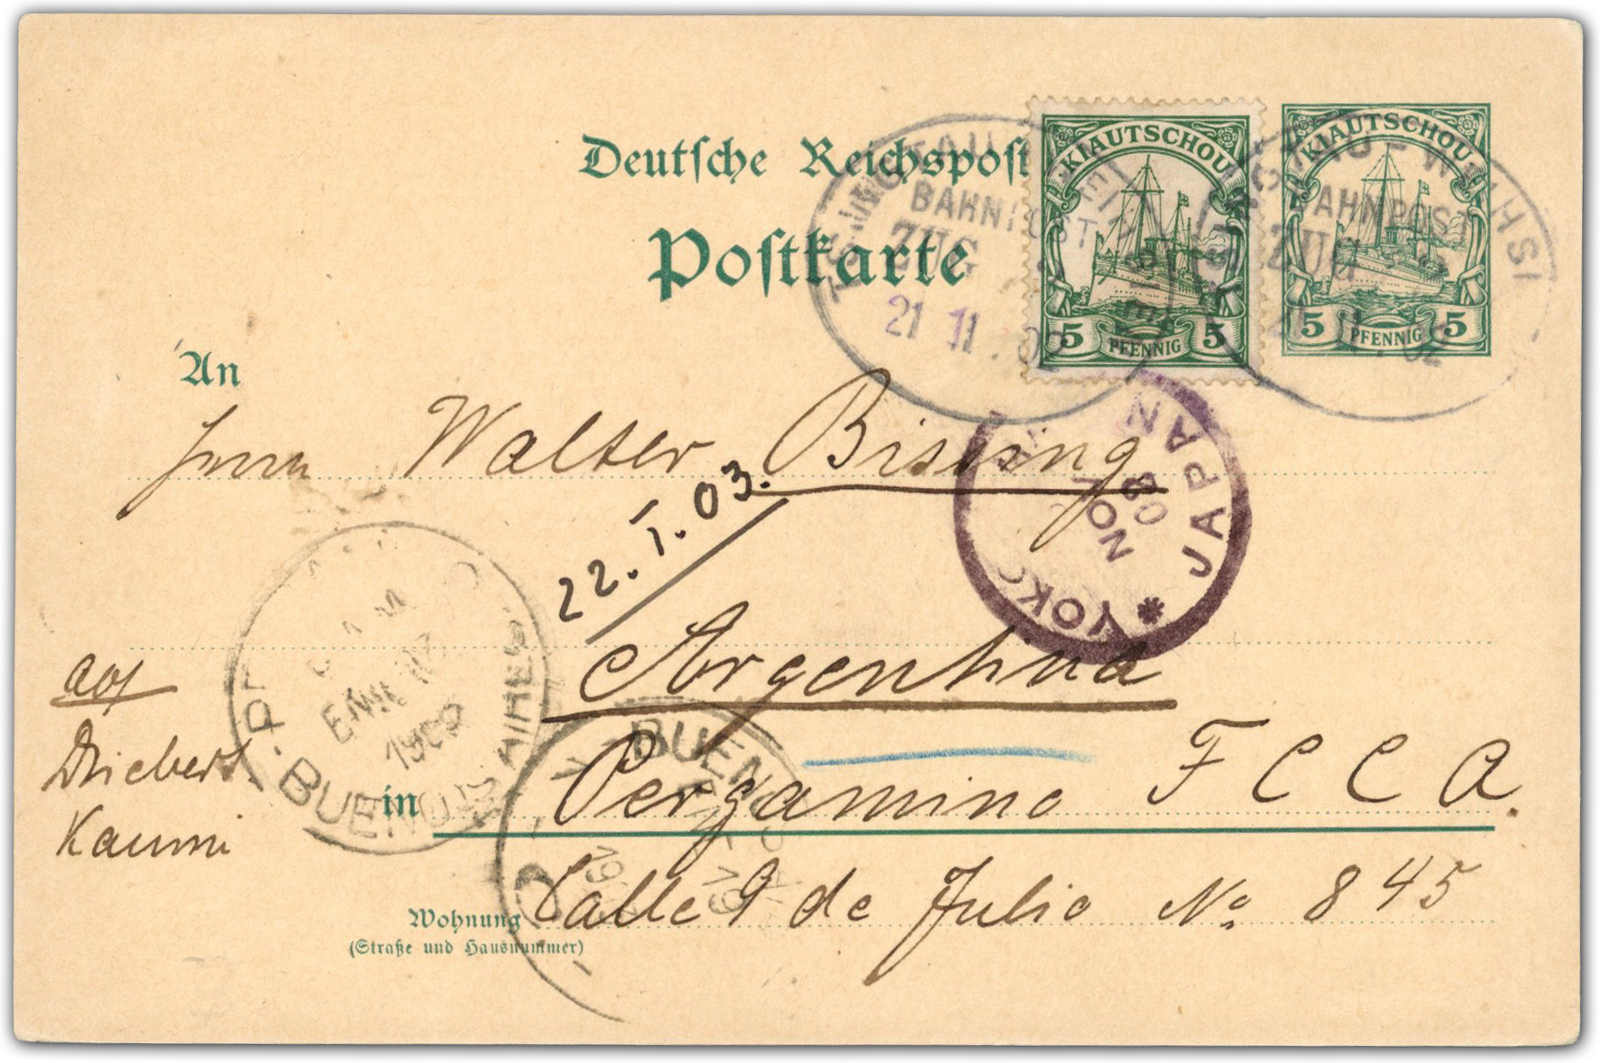 Deutsche Reichspost
Postkarte
KIAUTSCHOU
5 PFENNIG 5
KIAUTSCHOU
5 PFENNIG 5
BAHNPOST
ZUG
21 11 02
BAHNPOST
ZUG
An
Herrn Walter Bissing
22. I. 03.
YOKO
JAPAN
NOV
02
Argentina
in Pergamino F C C A.
Wohnung Calle 9 de Julio No 845
(Straße und Hausnummer)
BUENOS AIRES
BUENOS
Kaumi